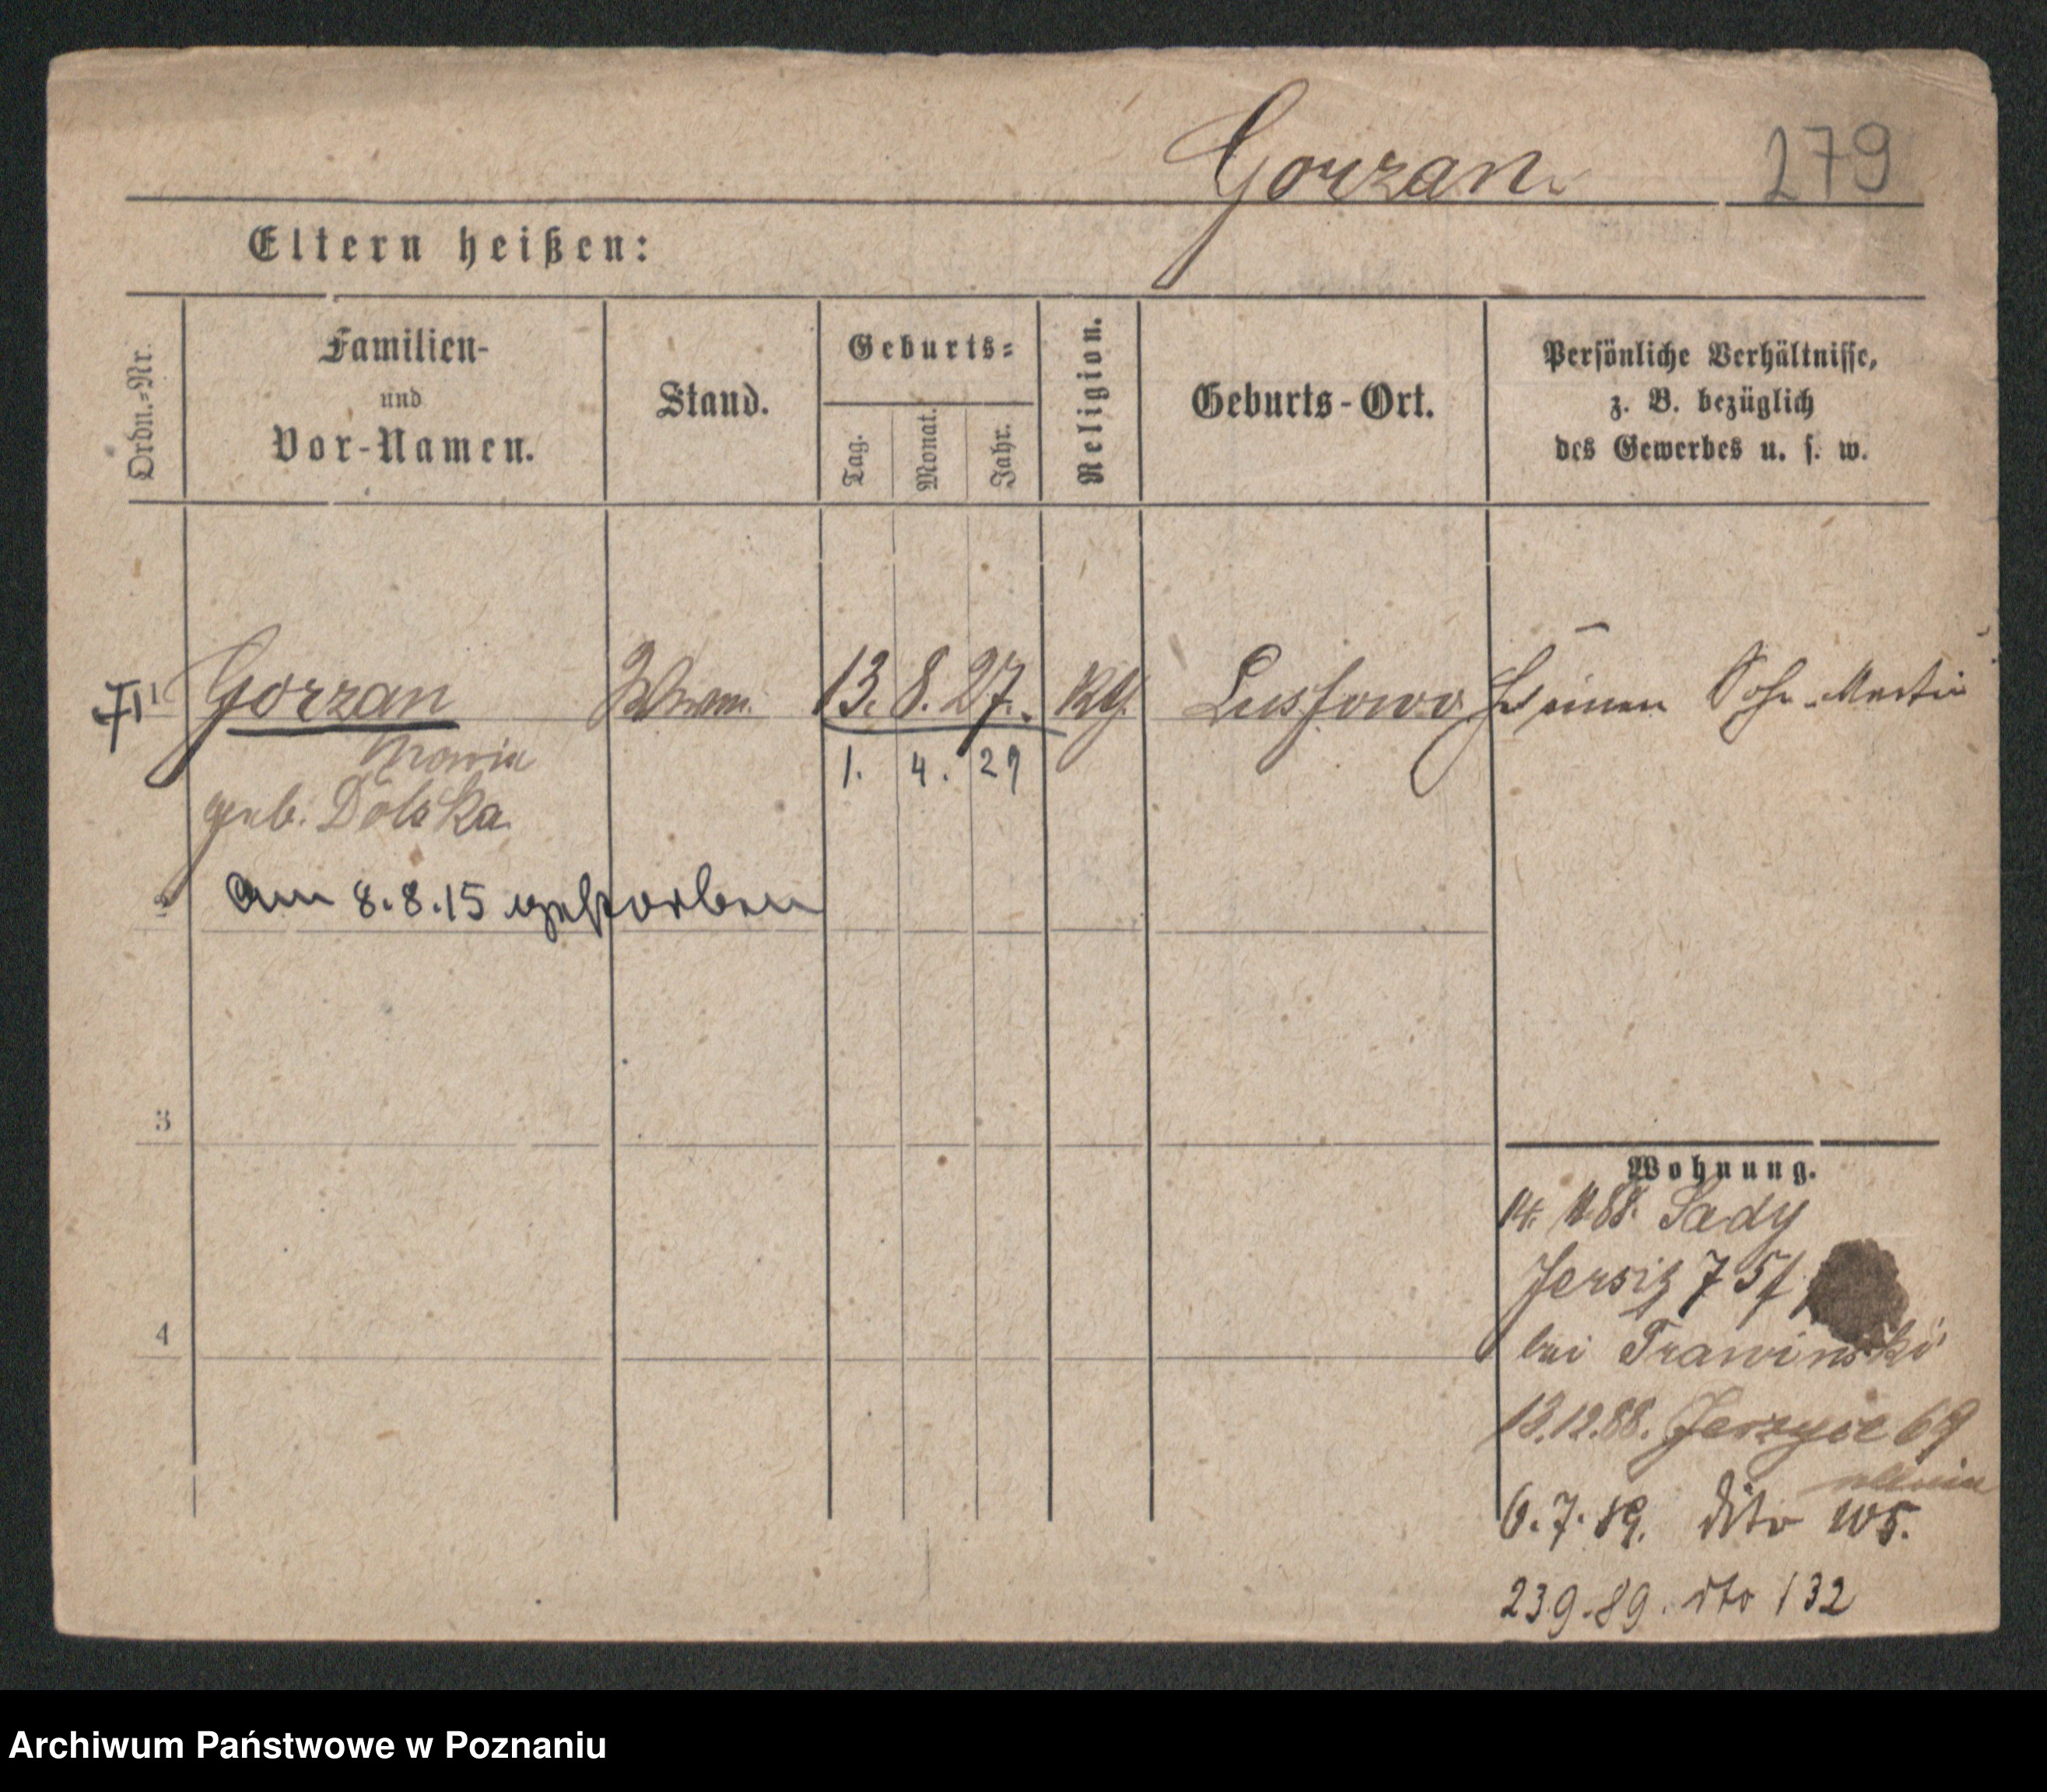 Gorzan 279
Eltern heißen:
Ordn.-Nr.
Familien-
und
Vor-Namen.
Stand.
Geburts-
Tag.
Monat.
Jahr.
Religion.
Geburts-Ort.
Persönliche Verhältnisse,
z. B. bezüglich
des Gewerbes u. s. w.
Gorzan 13. 8. 27. Kg. Lussowo Sohn Martin
Maria 1. 4. 29
geb. Dolska
am 8.8.15 gestorben
3
Wohnung.
14. 11. 88. Sady
Jersitz 75/
4
bei Trawinski
13.12.88. Jerzyce 69
6.7.89. dito 105.
23.9.89. dto 132
Archiwum Państwowe w Poznaniu